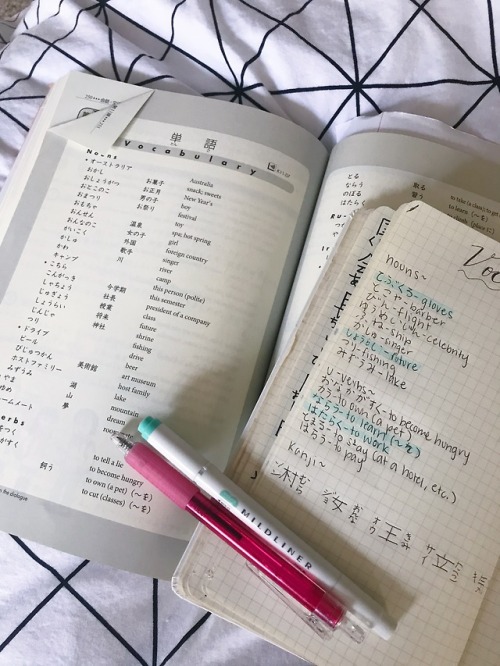 単語
たん ご
Vocabulary
Nouns
*オーストラリア Australia
おかし お菓子 snack; sweets
おしょうがつ お正月 New Year's
おとこのこ 男の子 boy
おまつり お祭り festival
おもちゃ toy
おんせん 温泉 spa; hot spring
おんなのこ 女の子 girl
がいこく 外国 foreign country
かしゅ 歌手 singer
かわ 川 river
キャンプ camp
*こちら this person (polite)
こんがっき 今学期 this semester
しゃちょう 社長 president of a company
じゅぎょう 授業 class
しょうらい 将来 future
じんじゃ 神社 shrine
つり fishing
*ドライブ drive
ビール beer
びじゅつかん 美術館 art museum
ホストファミリー host family
みずうみ 湖 lake
やま 山 mountain
ゆめ 夢 dream
ームメート
erbs
をつく to tell a lie
がすく to become hungry
飼う to own (a pet) (〜を)
to cut (classes) (〜を)
the dialogue
とる 取る to take (a class); to get
ならう 習う to learn (〜を)
のぼる to climb
はたらく
Ru-
nouns~
てぶくろ-gloves
とこや-barber
びん-flight
ゆうめいじん-celebrity
ふね-ship
かしゅ-singer
しょうらい-future
つり-fishing
みずうみ-lake
u-verbs~
おなかがすく-to become hungry
かう-to own (a pet)
ならう-to learn (〜を)
はたらく-to work
とまる-to stay (at a hotel, etc.)
はらう-to pay
kanji~
村 むら
女
オウ 王
立
MILDLINER